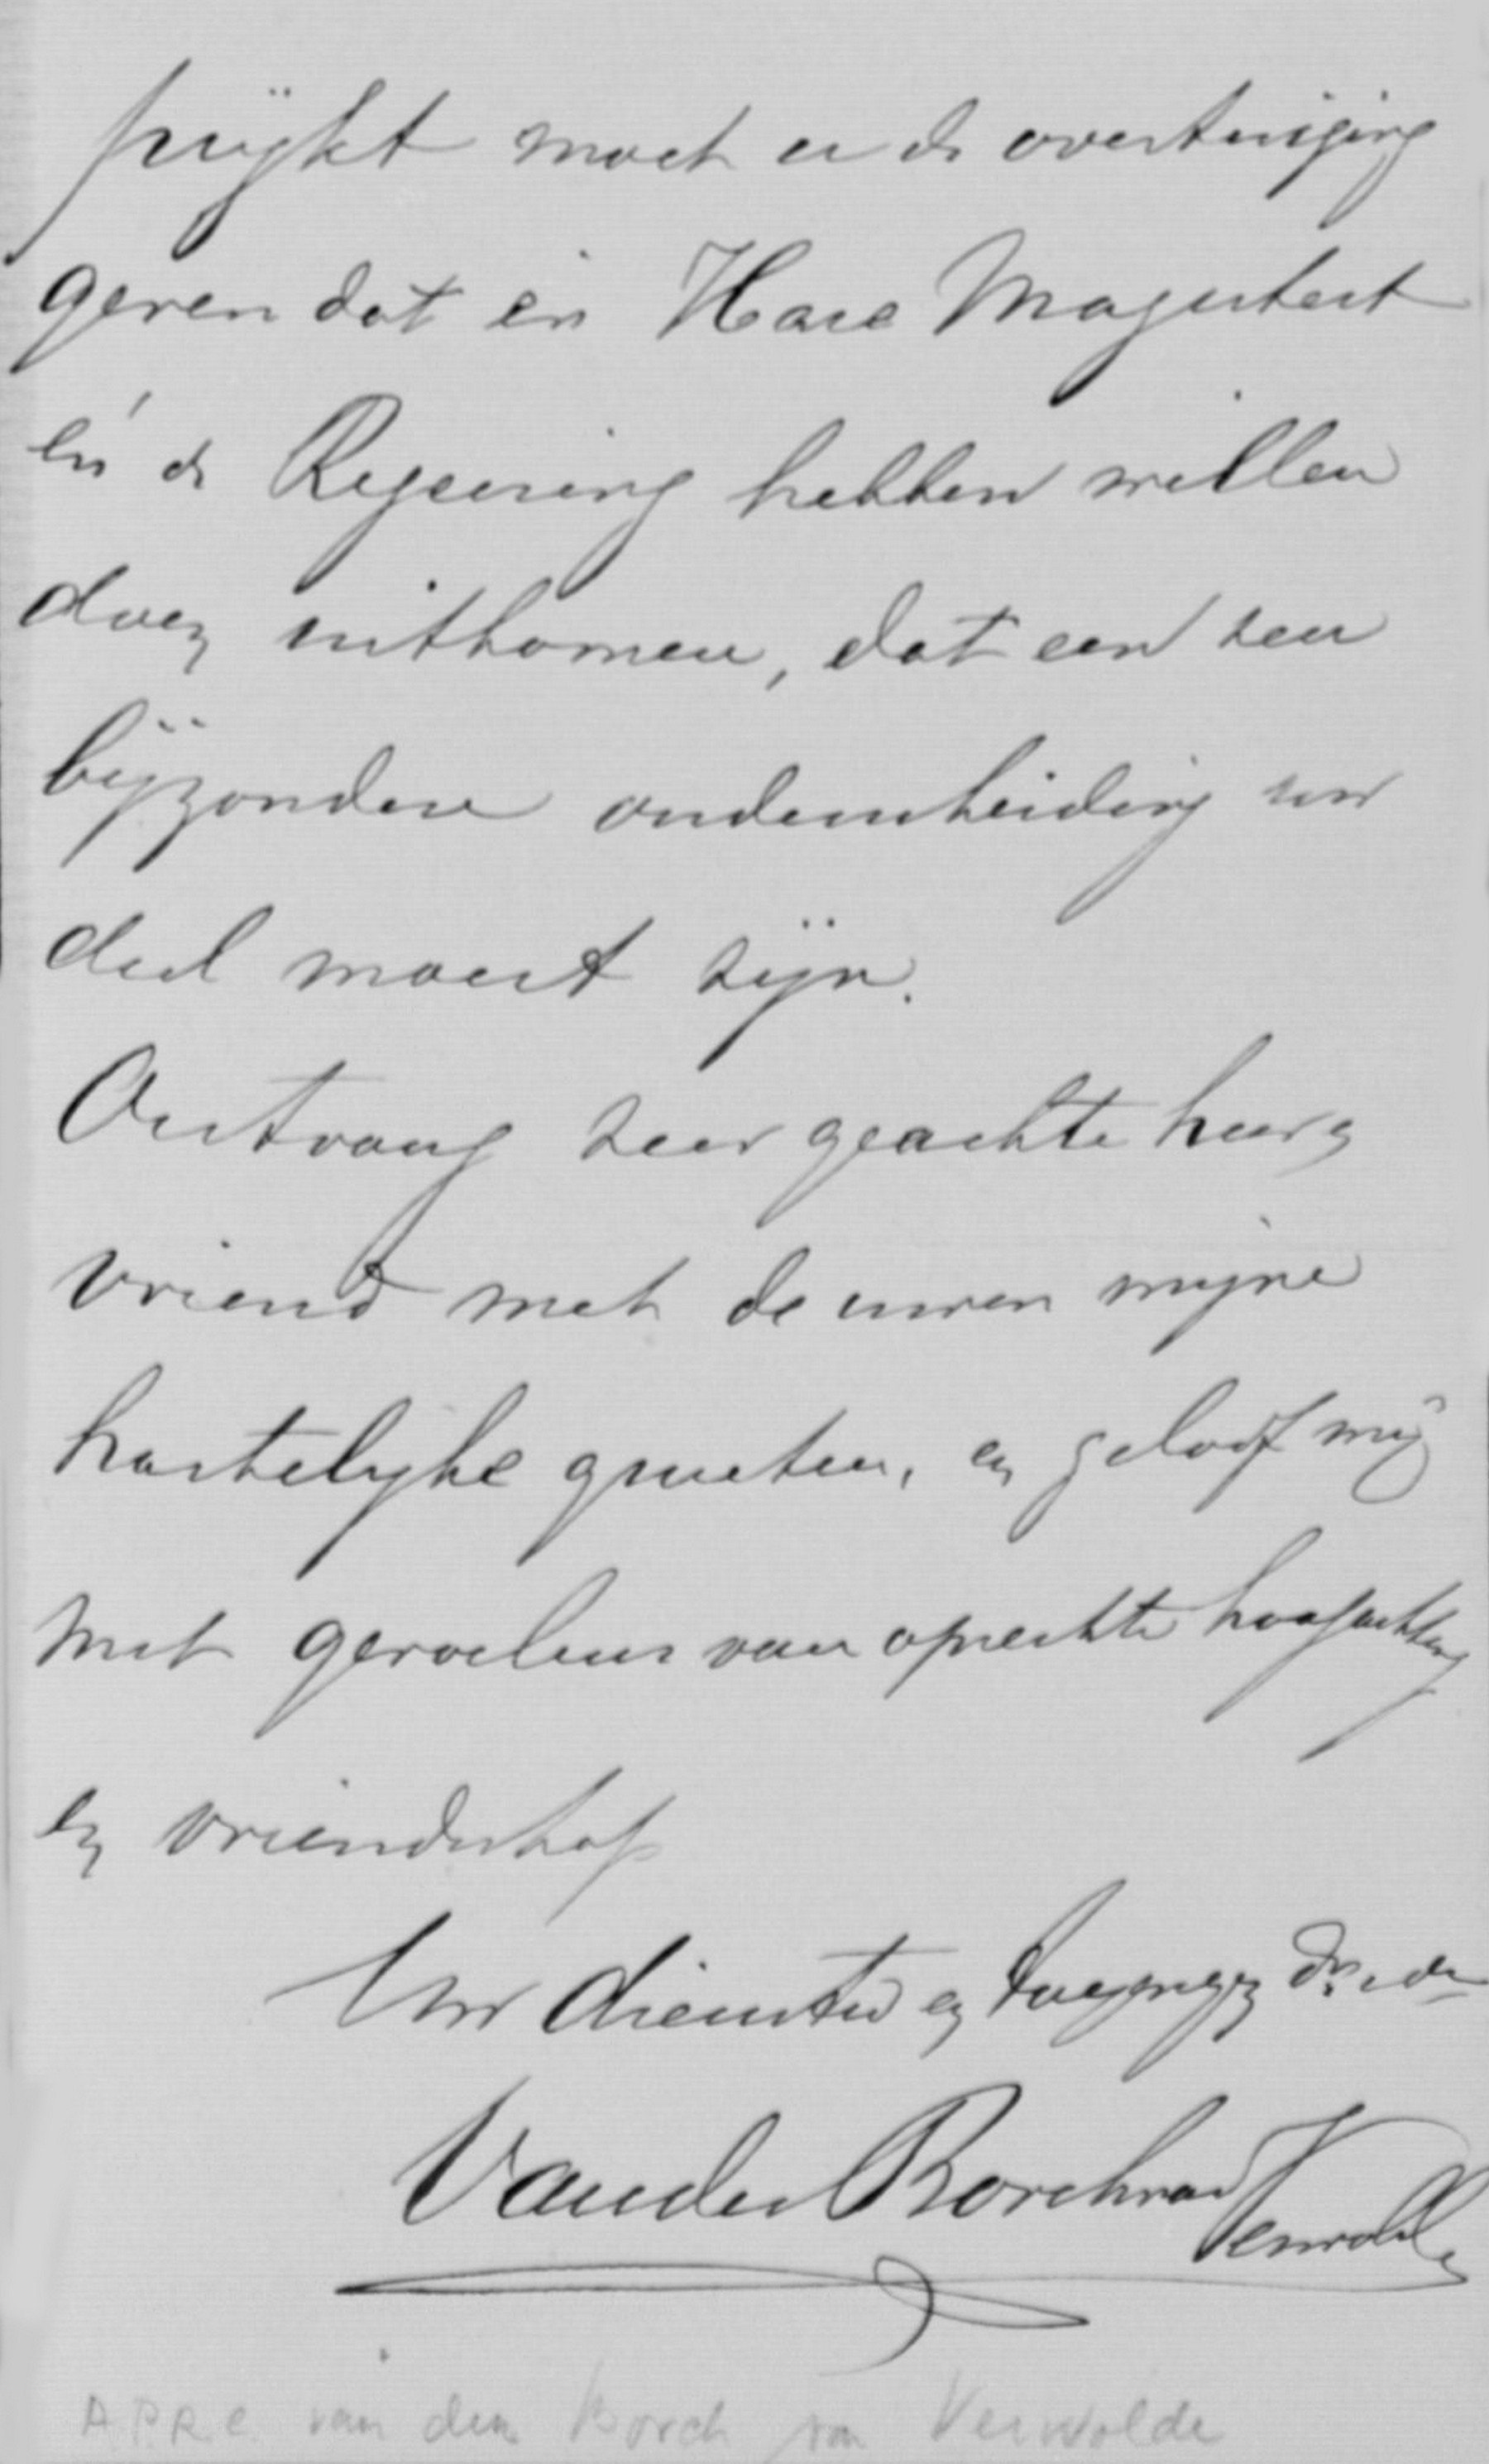 prijkt moet u de overtuiging
geven dat èn Hare Majesteit
èn de Regeering hebben willen
doen uitkomen, dat een zeer
bijzondere onderscheiding uw
deel moest zijn.
Ontvang zeer geachte heer en
vriend met de uwen mijne
hartelijke groeten, en geloof mij
met gevoelens van oprechte hoogachting
en vriendschap
Uw dienstw en toegenegen
Van der Borch van Verwolde
A.P.R.C. van der Borch van Verwolde